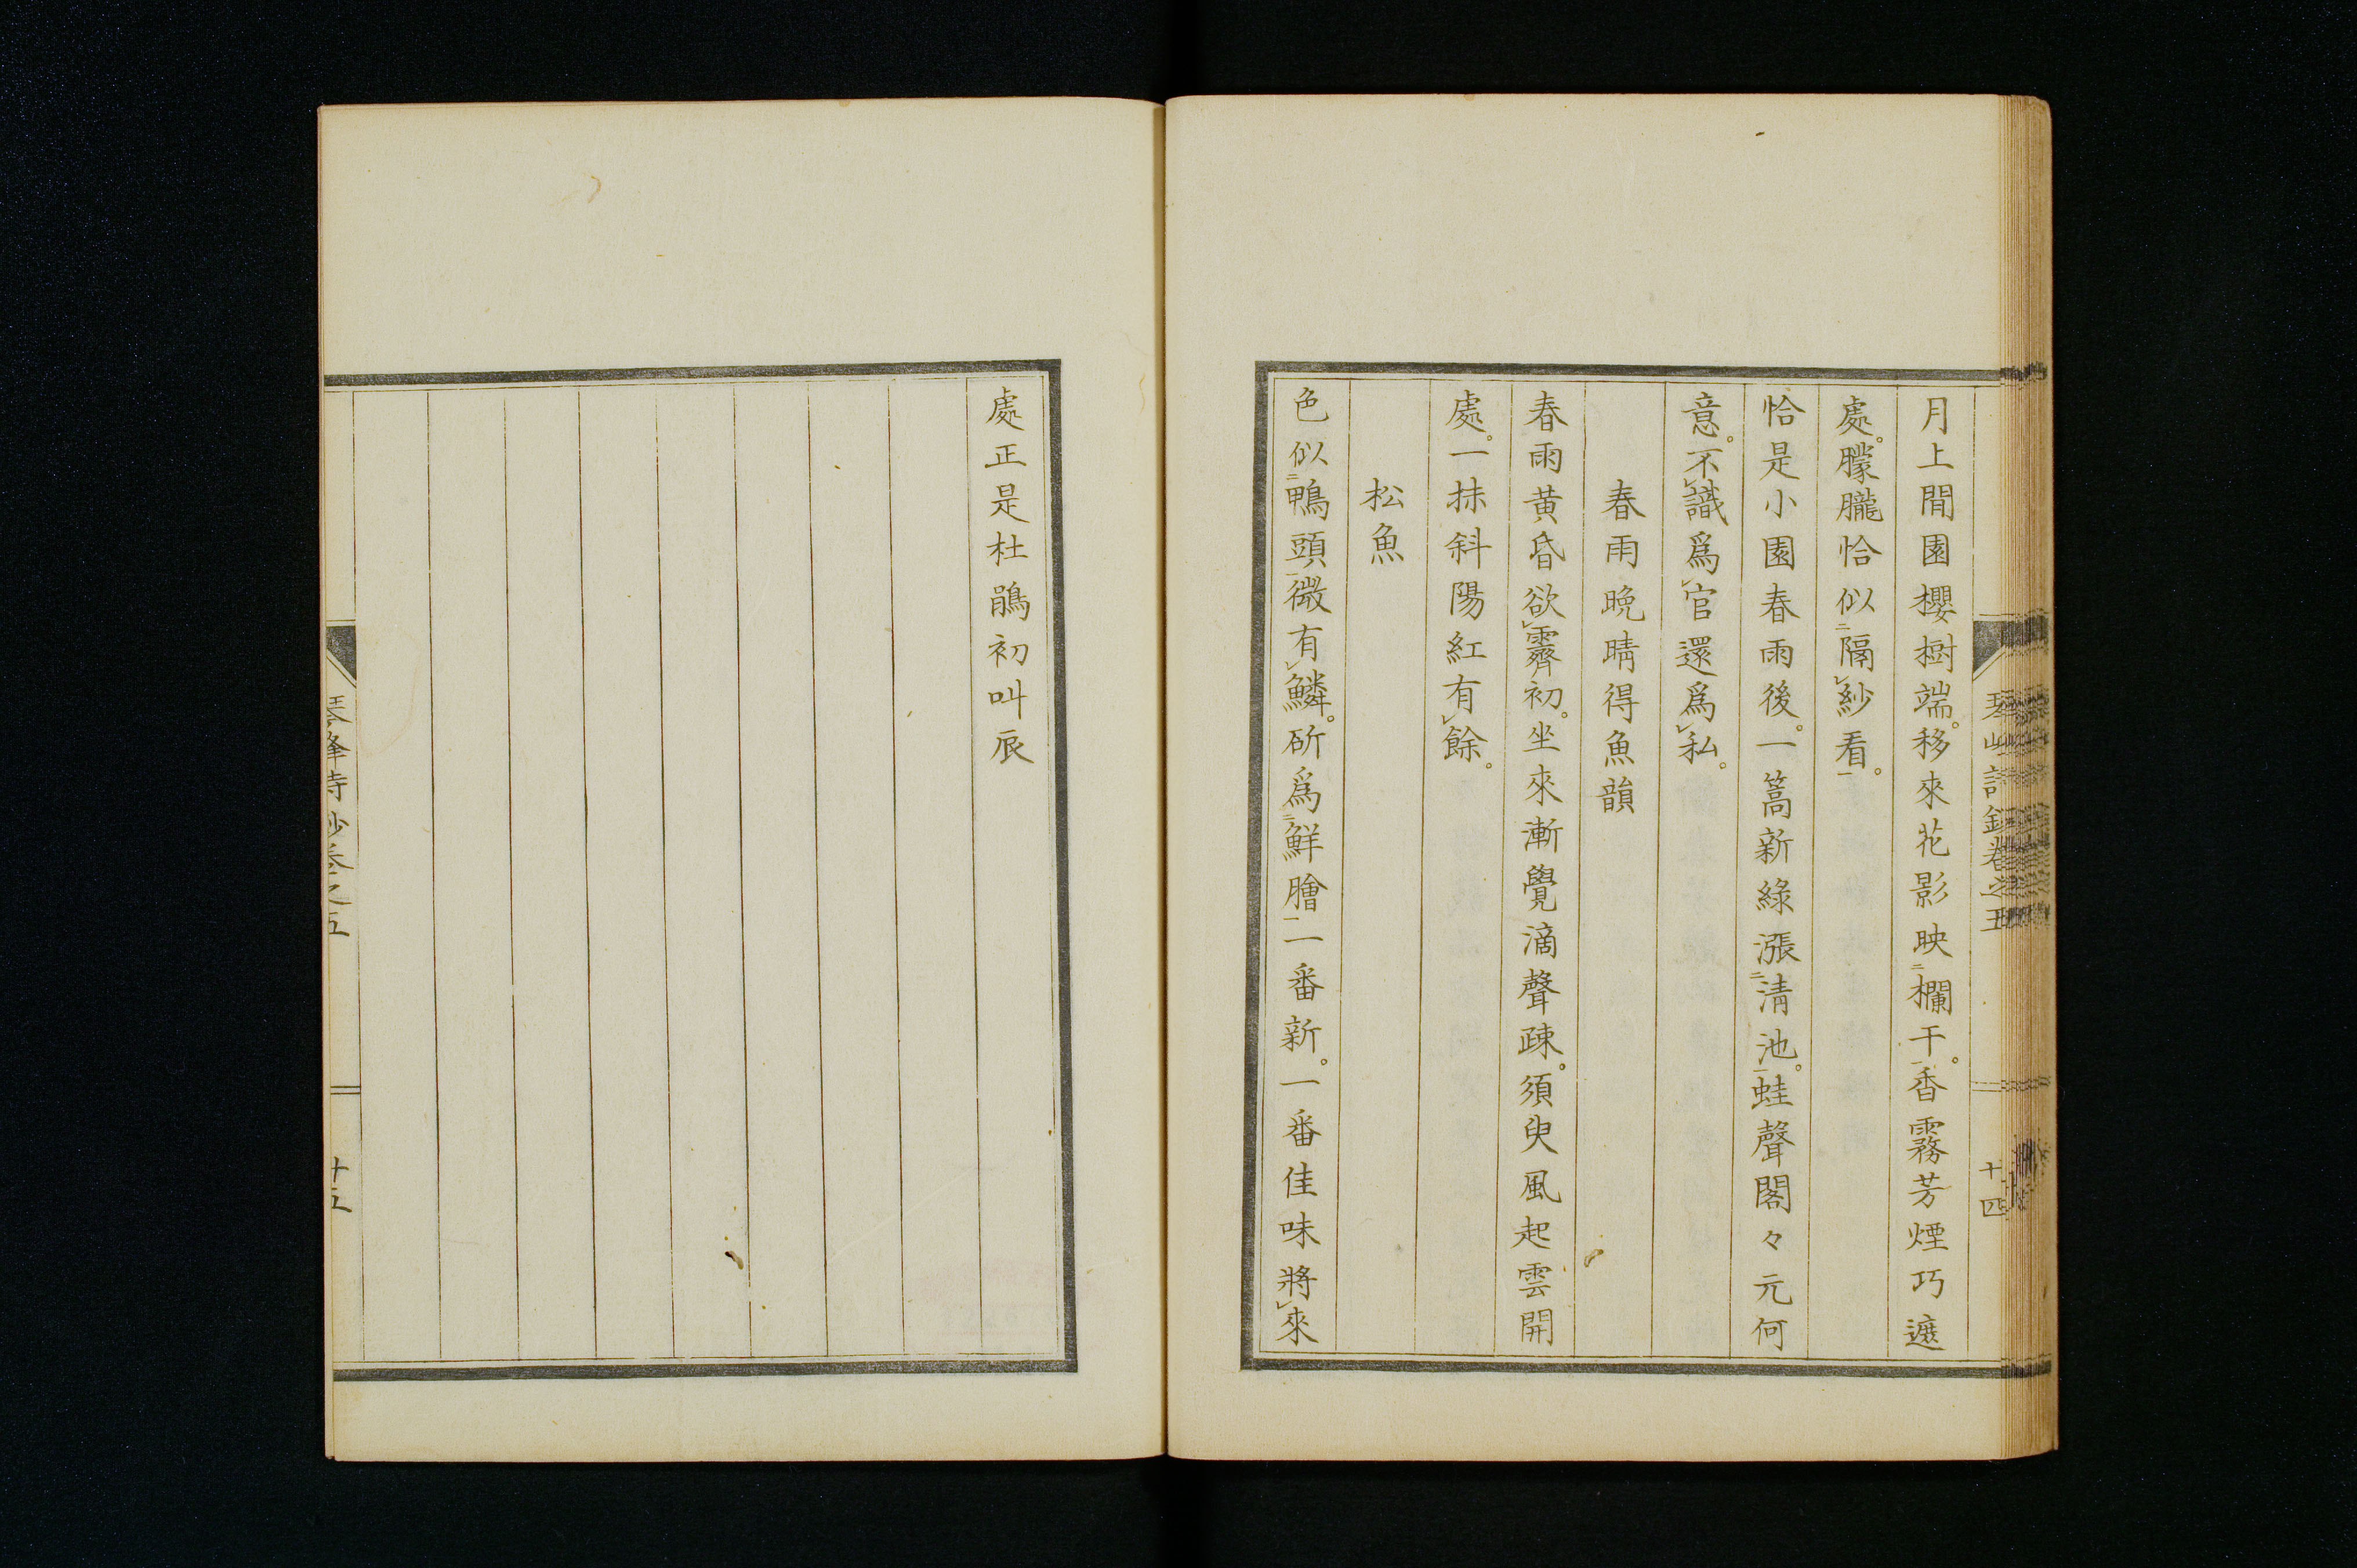 月上間園櫻樹端。移來花影映二欄干一。香霧芳煙巧遮
處。朦朧恰似二隔レ紗看一。
恰是小園春雨後。一篙新綠漲二清池一。蛙聲閣々元何
意。不レ識爲レ官還爲レ私。
春雨晚晴得魚韻
春雨黄昏欲レ霽初。坐來漸覺滴聲疎。須臾風起雲開
處。一抹斜陽紅有レ餘。
松魚
色似二鴨頭一微有レ鱗。斫爲二鮮膾一一番新。一番佳味將レ來
處正是杜鵑初叫辰
琴峰詩鈔卷之五
十四
琴峰詩鈔卷之五
十五